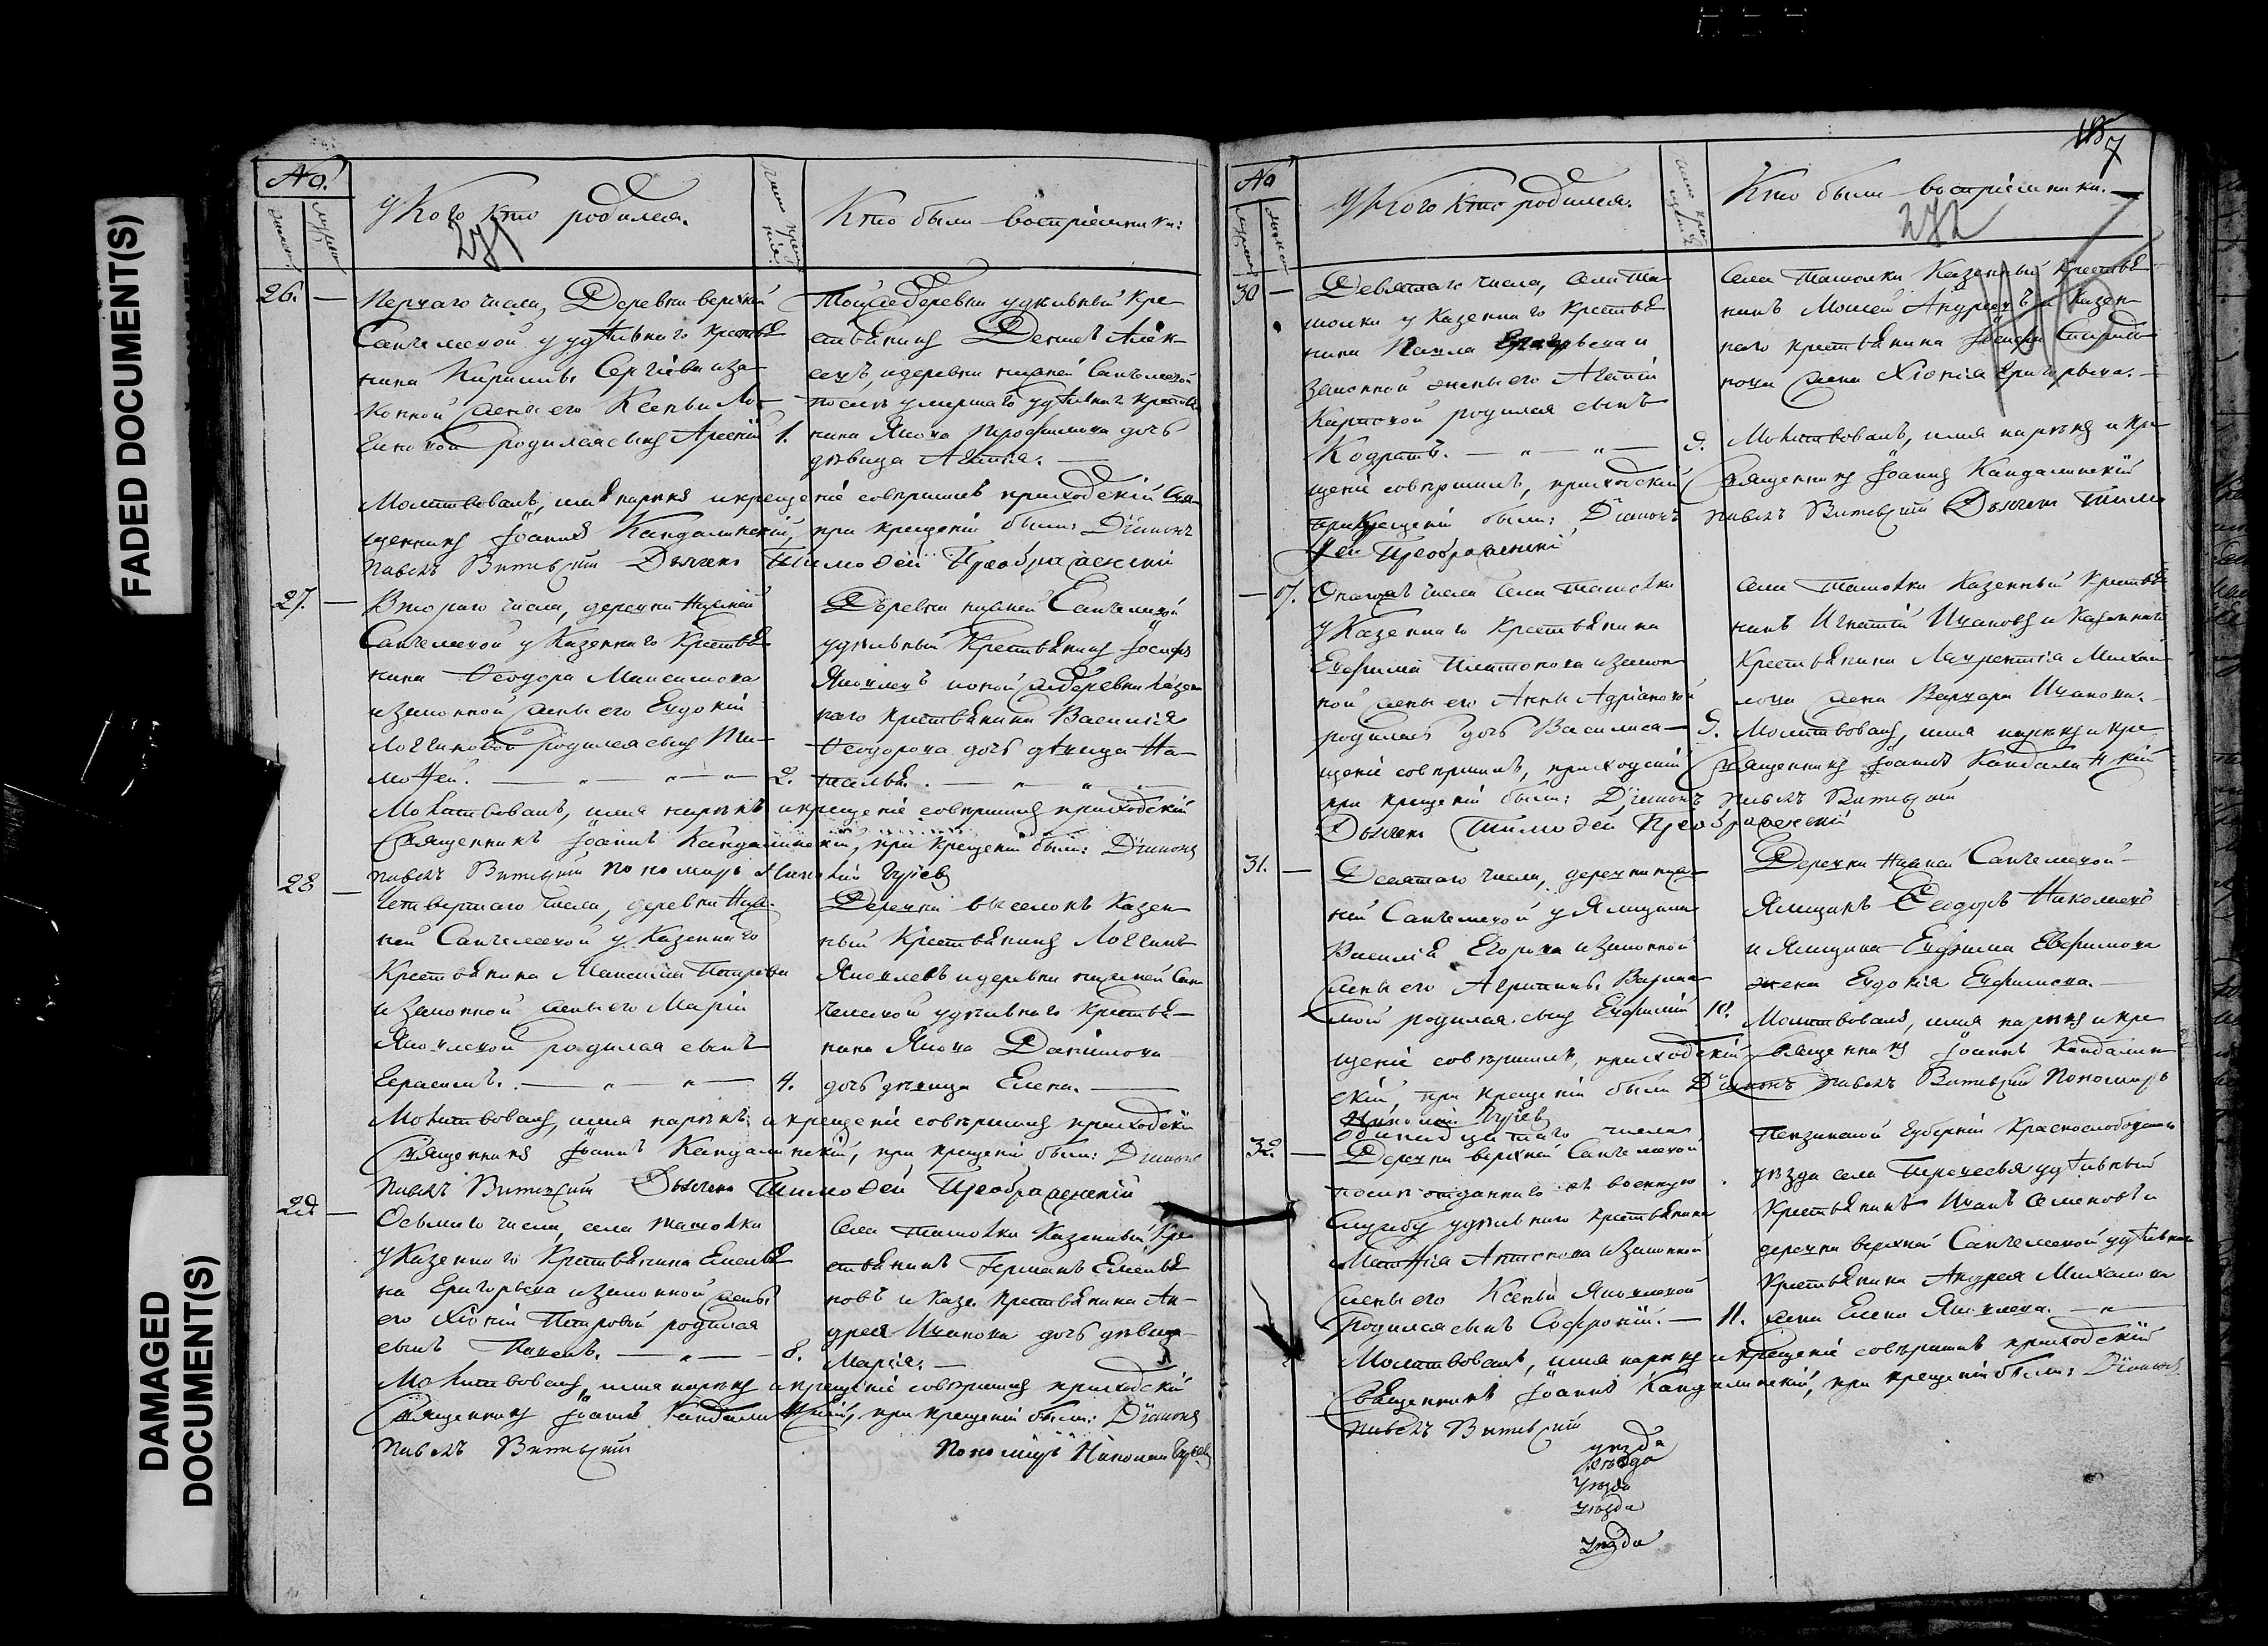 FADED DOCUMENT(S)
DAMAGED
DOCUMENT(S)
No.
У Кого кто родился.
271
Кто были воспріемники:
26. — Перваго числа, Деревни верхней
Санчелеевой у удѣльнаго крестья
нина Кирилы Сергіева и за
конной жены его Ксеньи Ло-
гиновой родился сынъ Арсеній 1.
Той же деревни удѣльный кре
стьянинъ Денисъ Алек
сеевъ, и деревни нижней Санчелеевой
послѣ умершаго удѣльнаго крестья
нина Якова Трофимова дочь
дѣвица Агапія. —
Молитвовалъ, имя нарекъ и крещеніе совершилъ приходскій Свя
щенникъ Іоаннъ Кандалинскій, при крещеніи были: Діаконъ
Павелъ Витевскій Дьячекъ Тимофей Преображенскій
27. — Втораго числа, деревни Нижней
Санчелеевой у Казеннаго Крестья
нина Ѳеодора Максимова
и законной жены его Евдокіи
Логгиновой родился сынъ Ти-
моѳей. — „ — „ — „ — 2.
Деревни нижней Санчелеевой
удѣльный Крестьянинъ Іосифъ
Яковлевъ и оной же деревни Казен
наго крестьянина Василія
Ѳеодорова дочь дѣвица На-
талья. — „ — „
Молитвовалъ, имя нарекъ и крещеніе совершилъ приходскій
Священникъ Іоаннъ Кандалинскій, при крещеніи были: Діаконъ
Павелъ Витевскій Пономарь Николай Гурьев
28 — Четвертаго числа, деревни Ниж-
ней Санчелеевой у Казеннаго
Крестьянина Максима Петрова
и законной жены его Маріи
Яковлевой родился сынъ
Герасимъ. — „ — „ — 4.
Деревни выселокъ Казен
ный Крестьянинъ Логгинъ
Яковлевъ и деревни нижней Сан
челеевой удѣльнаго Крестья-
нина Якова Данилова
дочь дѣвица Елена. —
Молитвовалъ, имя нарекъ и крещеніе совершилъ приходскій
Священникъ Іоаннъ Кандалинскій, при крещеніи были: Діаконъ
Павелъ Витевскій Дьячекъ Тимофей Преображенскій
29. — Осьмаго числа, села Ташолки
у Казеннаго Крестьянина Емелья
на Григорьева и законной жены
его Хіоніи Петровой родился
сынъ Павелъ. — „ — 8.
Села Ташолки Казенный Кре
стьянинъ Германъ Емелья
новъ и Казе. крестьянина Ан-
дрея Иванова дочь дѣвица
Марія. —
Молитвовалъ, имя нарекъ и крещеніе совершилъ приходскій
Священникъ Іоаннъ Кандалинскій, при крещеніи были: Діаконъ
Павелъ Витевскій Пономарь Николай Гурьев
No
У Кого кто родился.
Кто были воспріемники. —
272
30 — Девятаго числа, села Та
шолки у Казеннаго крестья
нина Павла
законной жены его Агапіи
Карповой родился сынъ
Кодратъ. — „ — „ — 9.
Села Ташолки Казенный крестья
нинъ Моисей Андреевъ и Казен
наго крестьянина
жена Хіонія Григорьева. —
Молитвовалъ, имя нарекъ и кре
щеніе совершилъ, приходскій Священникъ Іоаннъ Кандалинскій
при крещеніи были: Діаконъ Павелъ Витевскій Дьячекъ Тимо
фей Преображенскій
— 7. Онагожъ числа села Ташолки
у Казеннаго Крестьянина
Евфима Платонова и закон
ной жены его Анны Адріановой
родилась дочь Василиса — 9.
Села Ташолки Казенный Крестья
нинъ Игнатій Ивановъ и Казеннаго
Крестьянина Лаврентія Михай
лова жена Варвара Иванова. —
Молитвовалъ, имя нарекъ и кре
щеніе совершилъ, приходскій Священникъ Іоаннъ Кандалинскій
при крещеніи были: Діаконъ Павелъ Витевскій
Дьячекъ Тимофей Преображенскій
31. — Десятаго числа, деревни ниж
ней Санчелеевой у Ямщика
Василія Егорова и законной
жены его Агрипины
родился сынъ Евфимій 10.
Деревни Нижней Санчелеевой —
Ямщикъ Ѳеодоръ Николаевъ
и Ямщика Евфима Евфимова
жена Евдокія Евфимова. —
Молитвовалъ, имя нарекъ и кре
щеніе совершилъ, приходскій Священникъ Іоаннъ Кандалин
скій, при крещеніи были Діаконъ Павелъ Витевскій Пономарь
Николай Гурьев
32. — Одинадцатаго числа
Деревни верхней Санчелеевой
послѣ отданнаго въ военную
Службу удѣльнаго крестьянина
Матѳія Антонова и законной
жены его Ксеньи Яковлевой
родился сынъ Софроній. — 11.
Пензинской Губерніи Краснослободскаго
уѣзда села удѣльный
Крестьянинъ Иванъ Семеновъ и
деревни верхней Санчелеевой удѣльнаго
Крестьянина Андрея Михайлова
жена Елена Яковлева. — „ —
Молитвовалъ, имя нарекъ и крещеніе совершилъ приходскій
Священникъ Іоаннъ Кандалинскій, при крещеніи были: Діаконъ
Павелъ Витевскій
уѣзда
уѣзда
уѣзда
уѣзда
уѣзда